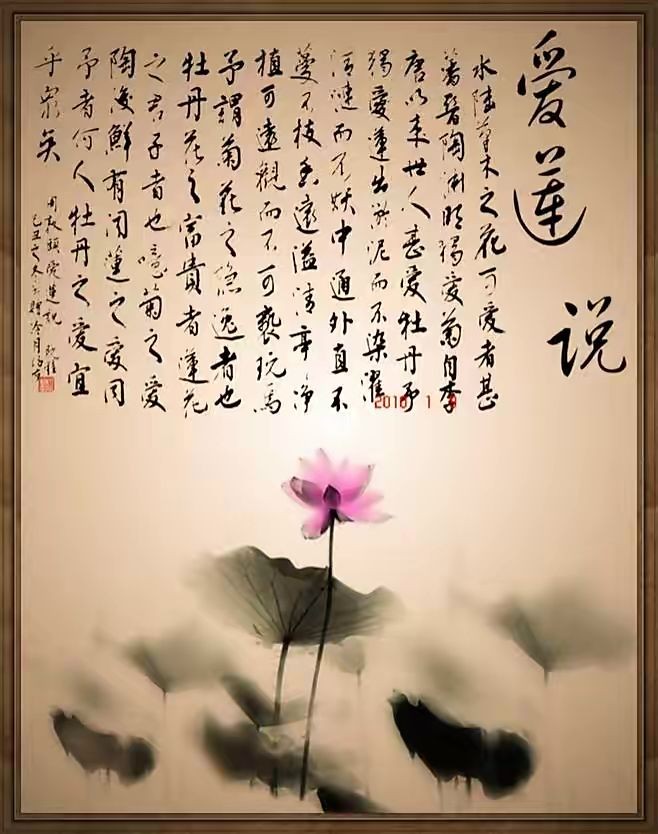 愛蓮说
水陸草木之花可愛者甚
蕃晉陶渊明獨愛菊自李
唐以来世人甚愛牡丹予
獨愛蓮出淤泥而不染濯
清涟而不妖中通外直不
蔓不枝香遠溢清亭净
植可遠觀而不可褻玩焉
予謂菊花之隐逸者也
牡丹花之富貴者蓮花
之君子者也噫菊之爱
陶後鮮有闻蓮之爱同
予者何人牡丹之愛宜
乎衆矣
周敦頤愛蓮说
己丑